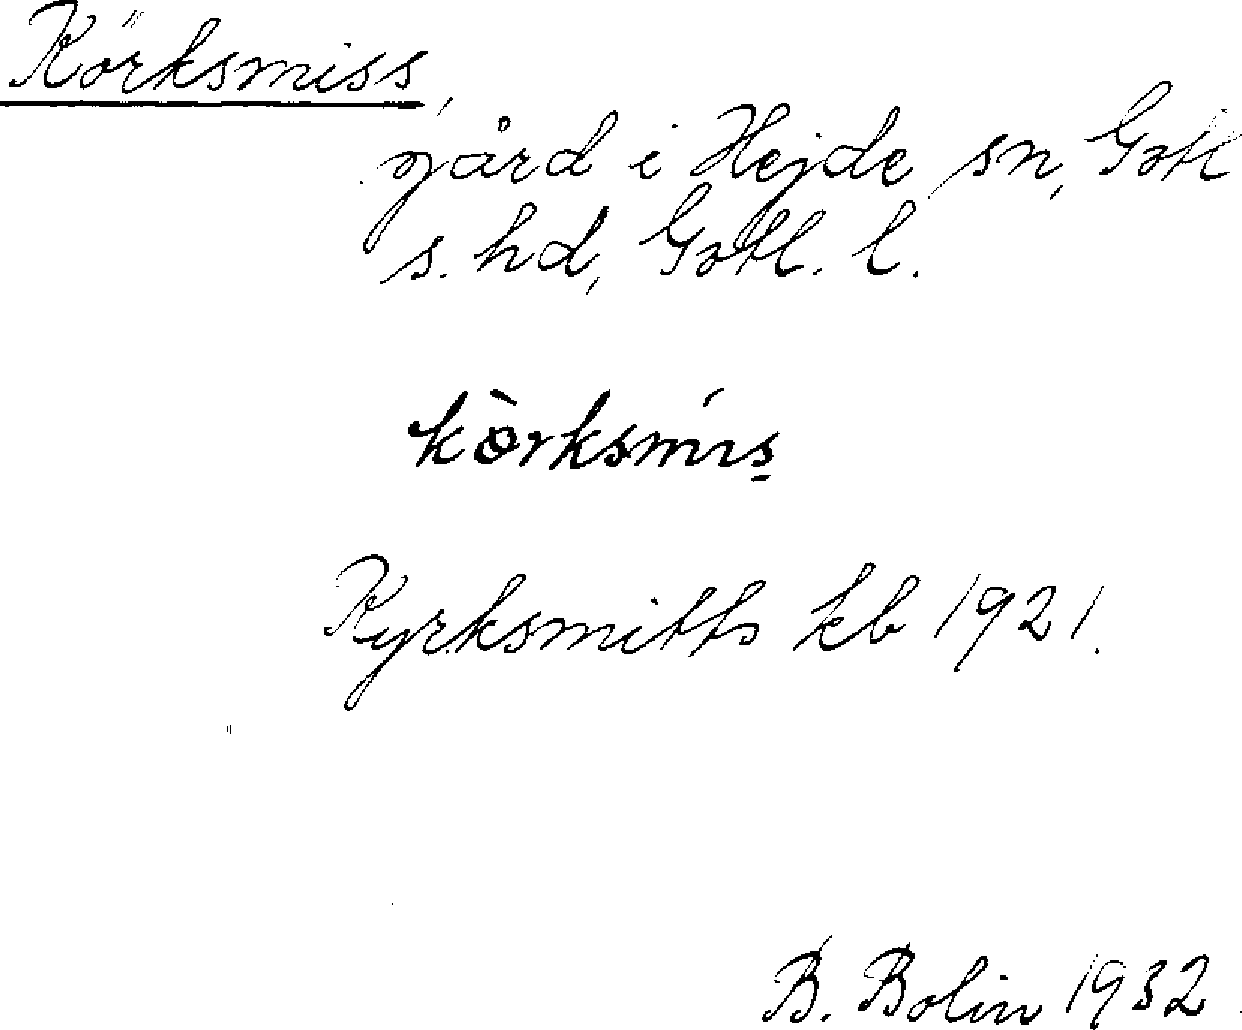 Körksmiss,
gård i Hejde sn, Gotl
s. hd, Gotl. l.
kòrksmís
Kyrksmitts kb 1921.
B. Bolin 1932.